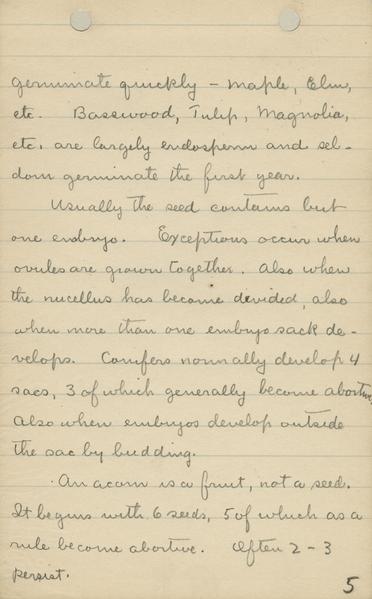 germinate quickly - maple, Elm,
etc. Basswood, Tulip, Magnolia,
etc. are largely endosperm and sel-
dom germinate the first year.
Usually the seed contains but
one embryo. Exceptions occur when
ovules are grown together. Also when
the nucellus has become divided, also
when more than one embryo sack de-
velops. Conifers normally develop 4
sacs, 3 of which generally become abortive.
Also when embryos develop outside
the sac by budding.
An acorn is a fruit, not a seed.
It begins with 6 seeds, 5 of which as a
rule become abortive. Often 2 - 3
persist.
5